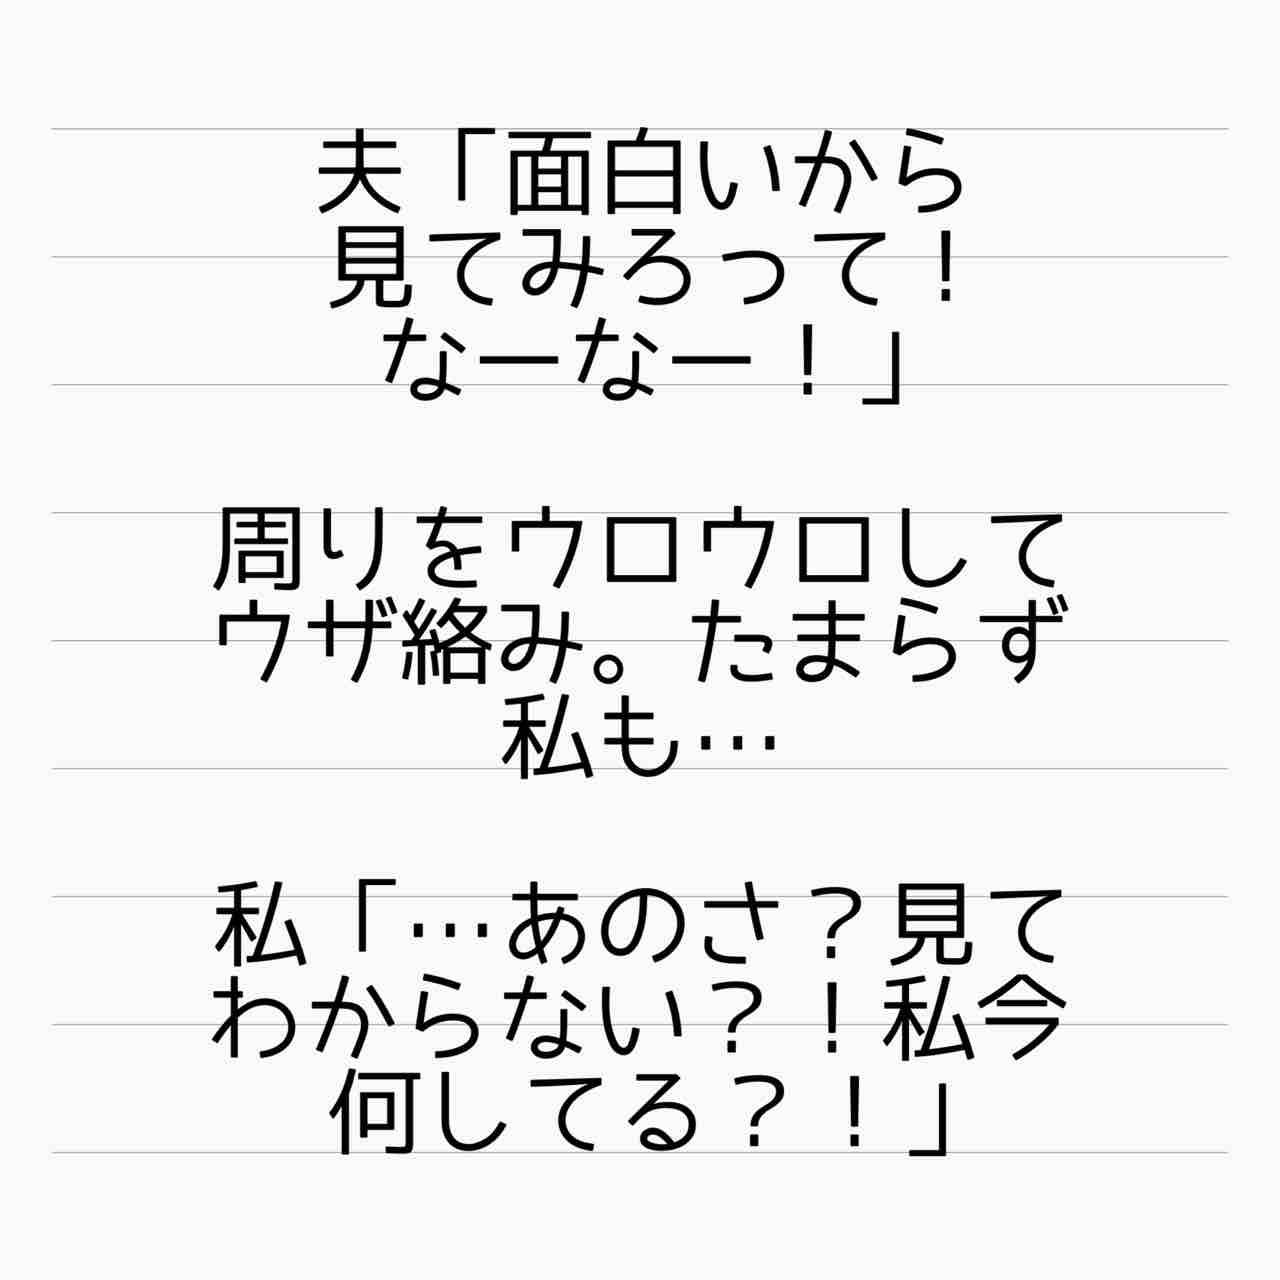 夫「面白いから
見てみろって！
なーなー！」
周りをウロウロして
ウザ絡み。たまらず
私も…
私「…あのさ？見て
わからない？！私今
何してる？！」